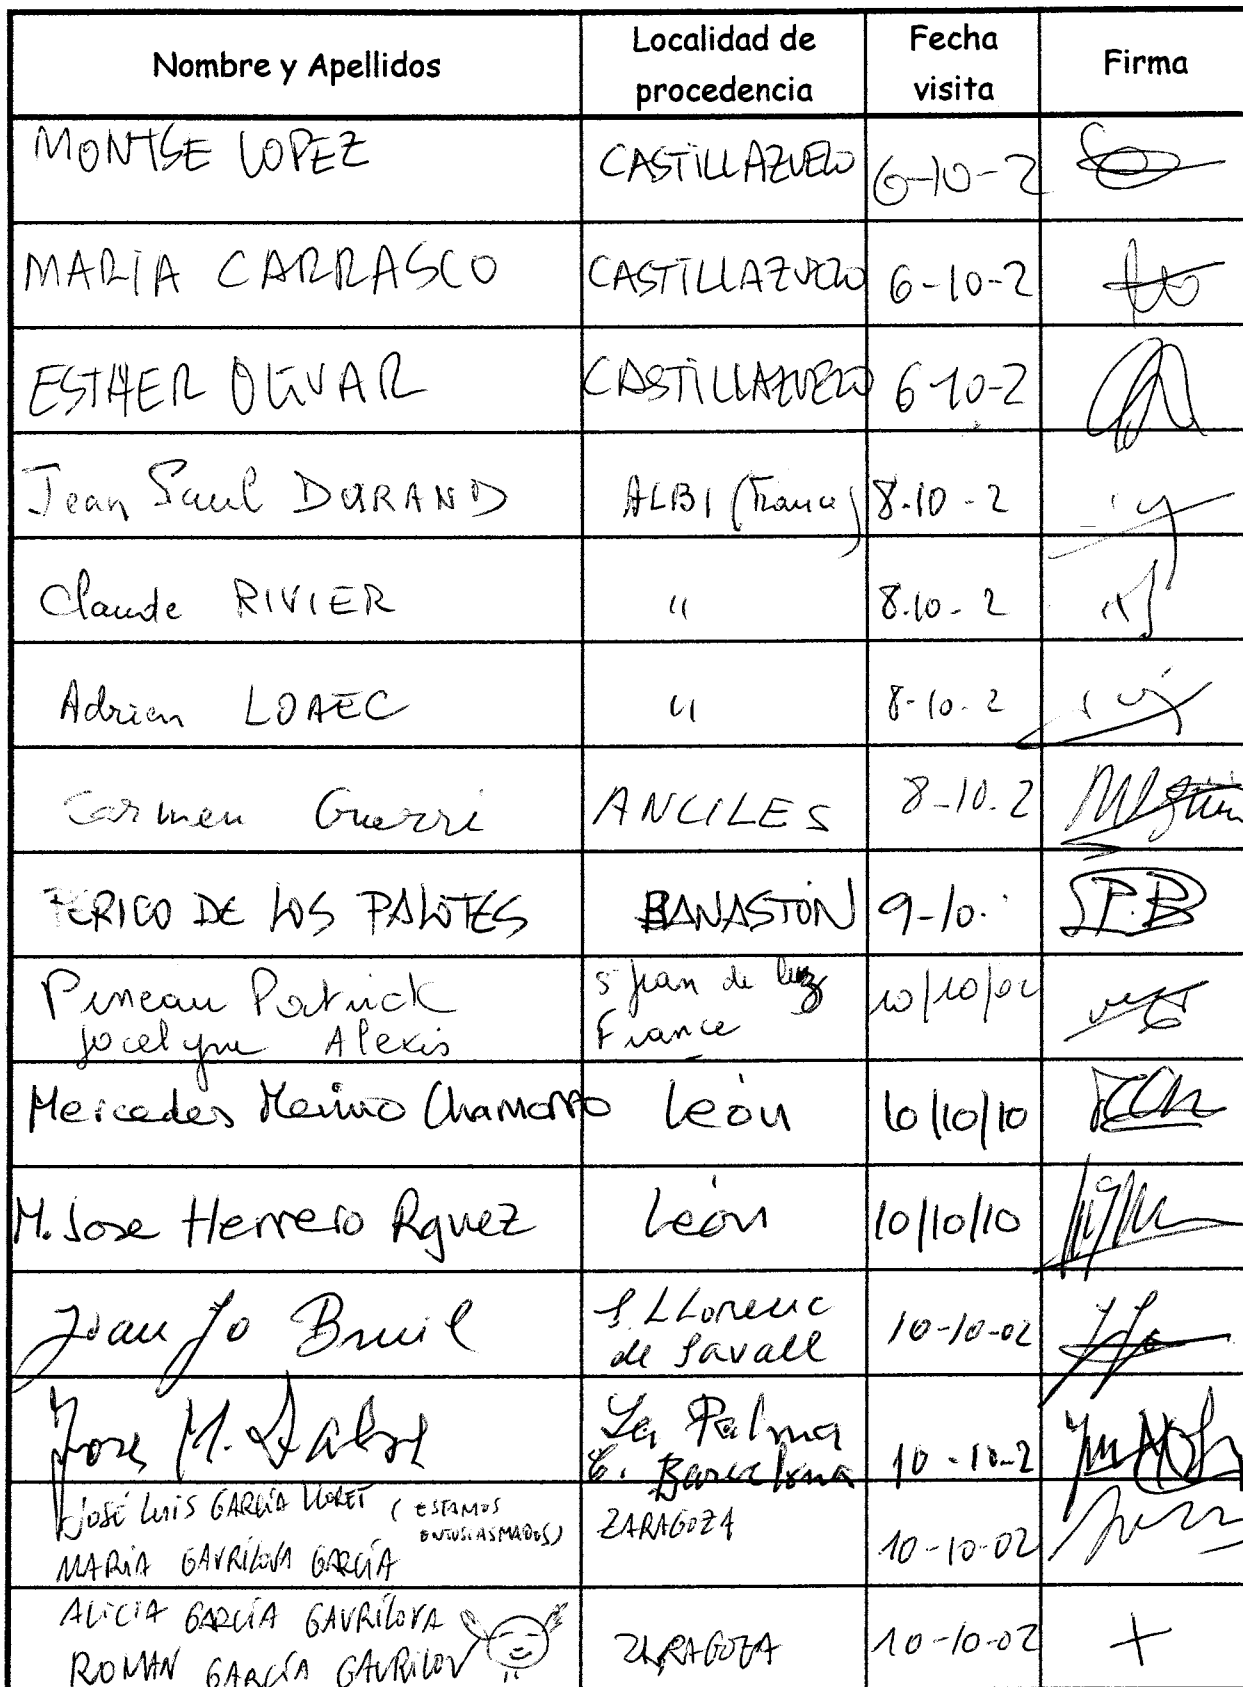 Nombre y Apellidos Localidad de procedencia Fecha visita Firma
MONTSE LOPEZ CASTILLAZUELO 6-10-2
MARIA CARRASCO CASTILLAZUELO 6-10-2
ESTHER OLIVAR CASTILLAZUELO 6-10-2
Jean Paul DURAND ALBI (France) 8.10-2
Claude RIVIER " 8.10-2
Adrien LOAEC " 8-10.2
Carmen Guerri ANCILES 8-10.2
PERICO DE LOS PALOTES BANASTON 9-10. P.B
Pineau Patrick S Jean de luz 10/10/02
Jocelyne Alexis France
Mercedes Merino Chamorro León 10/10/10
M. Jose Herrero Rguez León 10/10/10
Juan Jo Bruil S. LLorenc 10-10-02
de Savall
Jose M. La Palma 10-10-2
C. Barcelona
JOSÉ LUIS GARCÍA LLORET (ESTAMOS ENTUSIASMADOS) ZARAGOZA 10-10-02
MARIA GAVRILOVA GARCÍA
ALICIA GARCÍA GAVRILOVA ZARAGOZA 10-10-02 +
ROMAN GARCÍA GAVRILOV